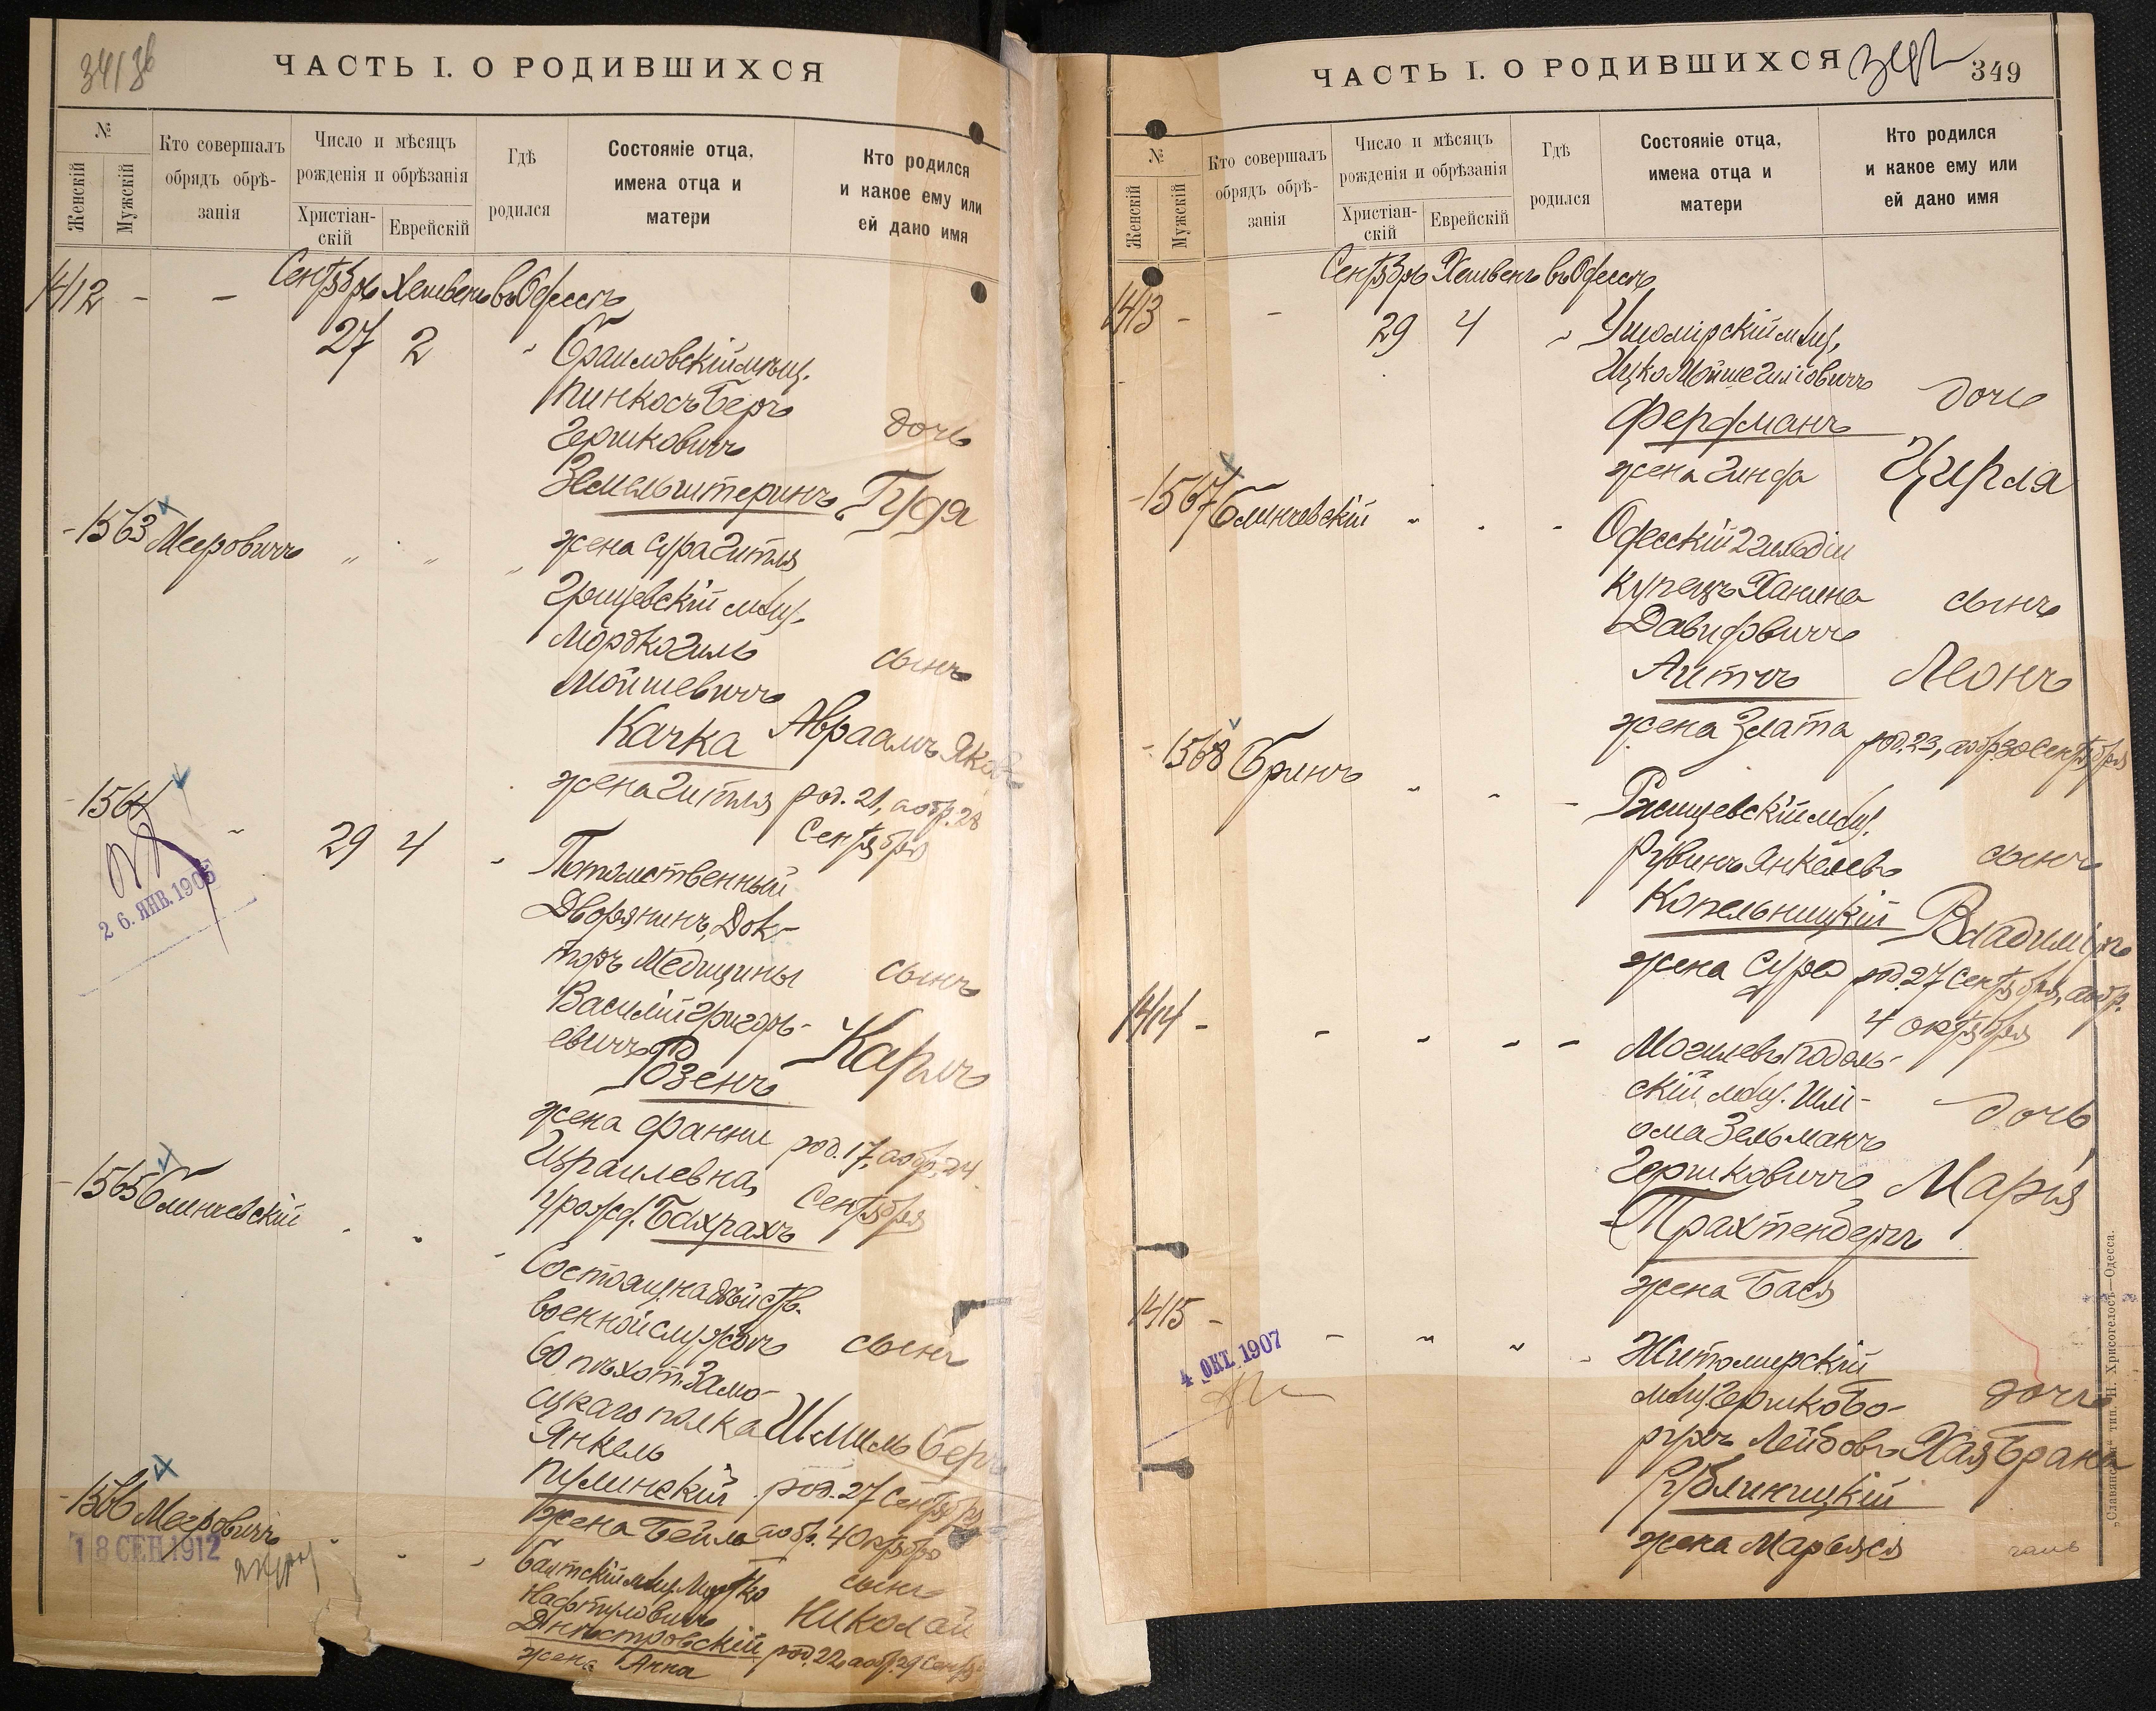 ЧАСТЬ I. О РОДИВШИХСЯ
№
Женскій
Мужскій
Кто совершалъ
обрядъ обрѣ-
занія
Число и мѣсяцъ
рожденія и обрѣзанія
Христіан-
скій
Еврейскій
Гдѣ
родился
Состояніе отца,
имена отца и
матери
Кто родился
и какое ему или
ей дано имя
1412 - -
Сентябрь Хешвенъ въ Одессѣ
27 2 "
Браиловскій мѣщ.
Пинкосъ Беръ
Гершковичъ
Земельштернъ
жена Сура Гитля
дочь
Гудя
- 1563 Мееровичъ " " "
Грицевскій мѣщ.
Мордко Гиль
Мойшевичъ
Качка
жена Гитля
сынъ
Авраамъ Яковъ
род. 21, а обр. 28
Сентября
- 1564 "
26. ЯНВ. 1905
29 4 "
Потомственный
Дворянинъ, Док-
торъ Медицины
Василій Григорь-
евичъ
Розенъ
жена Фанни
Израилевна,
урожд. Бахрахъ
сынъ
Карлъ
род. 17, а обр. 24
Сентября
- 1565 Блинчевскій " " "
Состоящ. на дѣйств.
военной службѣ
60 пѣхот. Замо-
сцкаго полка
Янкель
Пулинскій
жена Бейла
сынъ
Шмиль Беръ
род. 27 Сентября
а обр. 4 Октября
- 1566 Мееровичъ " " "
18 СЕН 1912
Балтскій мѣщ. Мордко
Нафтуловичъ
Днѣстровскій
жена Анна
сынъ
Николай
род. 22 а обр. 29 Сентяб
ЧАСТЬ I. О РОДИВШИХСЯ
349
№
Женскій
Мужскій
Кто совершалъ
обрядъ обрѣ-
занія
Число и мѣсяцъ
рожденія и обрѣзанія
Христіан-
скій
Еврейскій
Гдѣ
родился
Состояніе отца,
имена отца и
матери
Кто родился
и какое ему или
ей дано имя
1413 - -
Сентябрь Хешвенъ въ Одессѣ
29 4 "
Ушомірскій мѣщ.
Ицко Мойше Гилiовичъ
Фердманъ
жена Гинда
дочь
Цирля
- 1567 Блинчевскій " " "
Одесскій 2 гильдіи
купецъ Ханина
Давидовичъ
Аитъ
жена Злата
сынъ
Леонъ
род. 23, а обр. 30 Сентября
- 1568 Бринъ " " "
Ржищевскій мѣщ.
Рувинъ Янкелевъ
Копельницкій
жена Сура
сынъ
Владиміръ
род. 27 Сентября, а обр.
4 Октября
1414 - - " " "
Могилевъ Подоль-
скій мѣщ. Шлі-
ома Зельманъ
Гершковичъ
Трахтенбергъ
жена Бася
дочь
Марія
1415 - - " " "
4 ОКТ. 1907
Житомирскій
мѣщ. Гершко Бо-
рухъ Лейбовъ
Рублиницкій
жена Марьяся
дочь
Хая Брана
„Славянская“ тип. Н. Хрисогелосъ—Одесса.